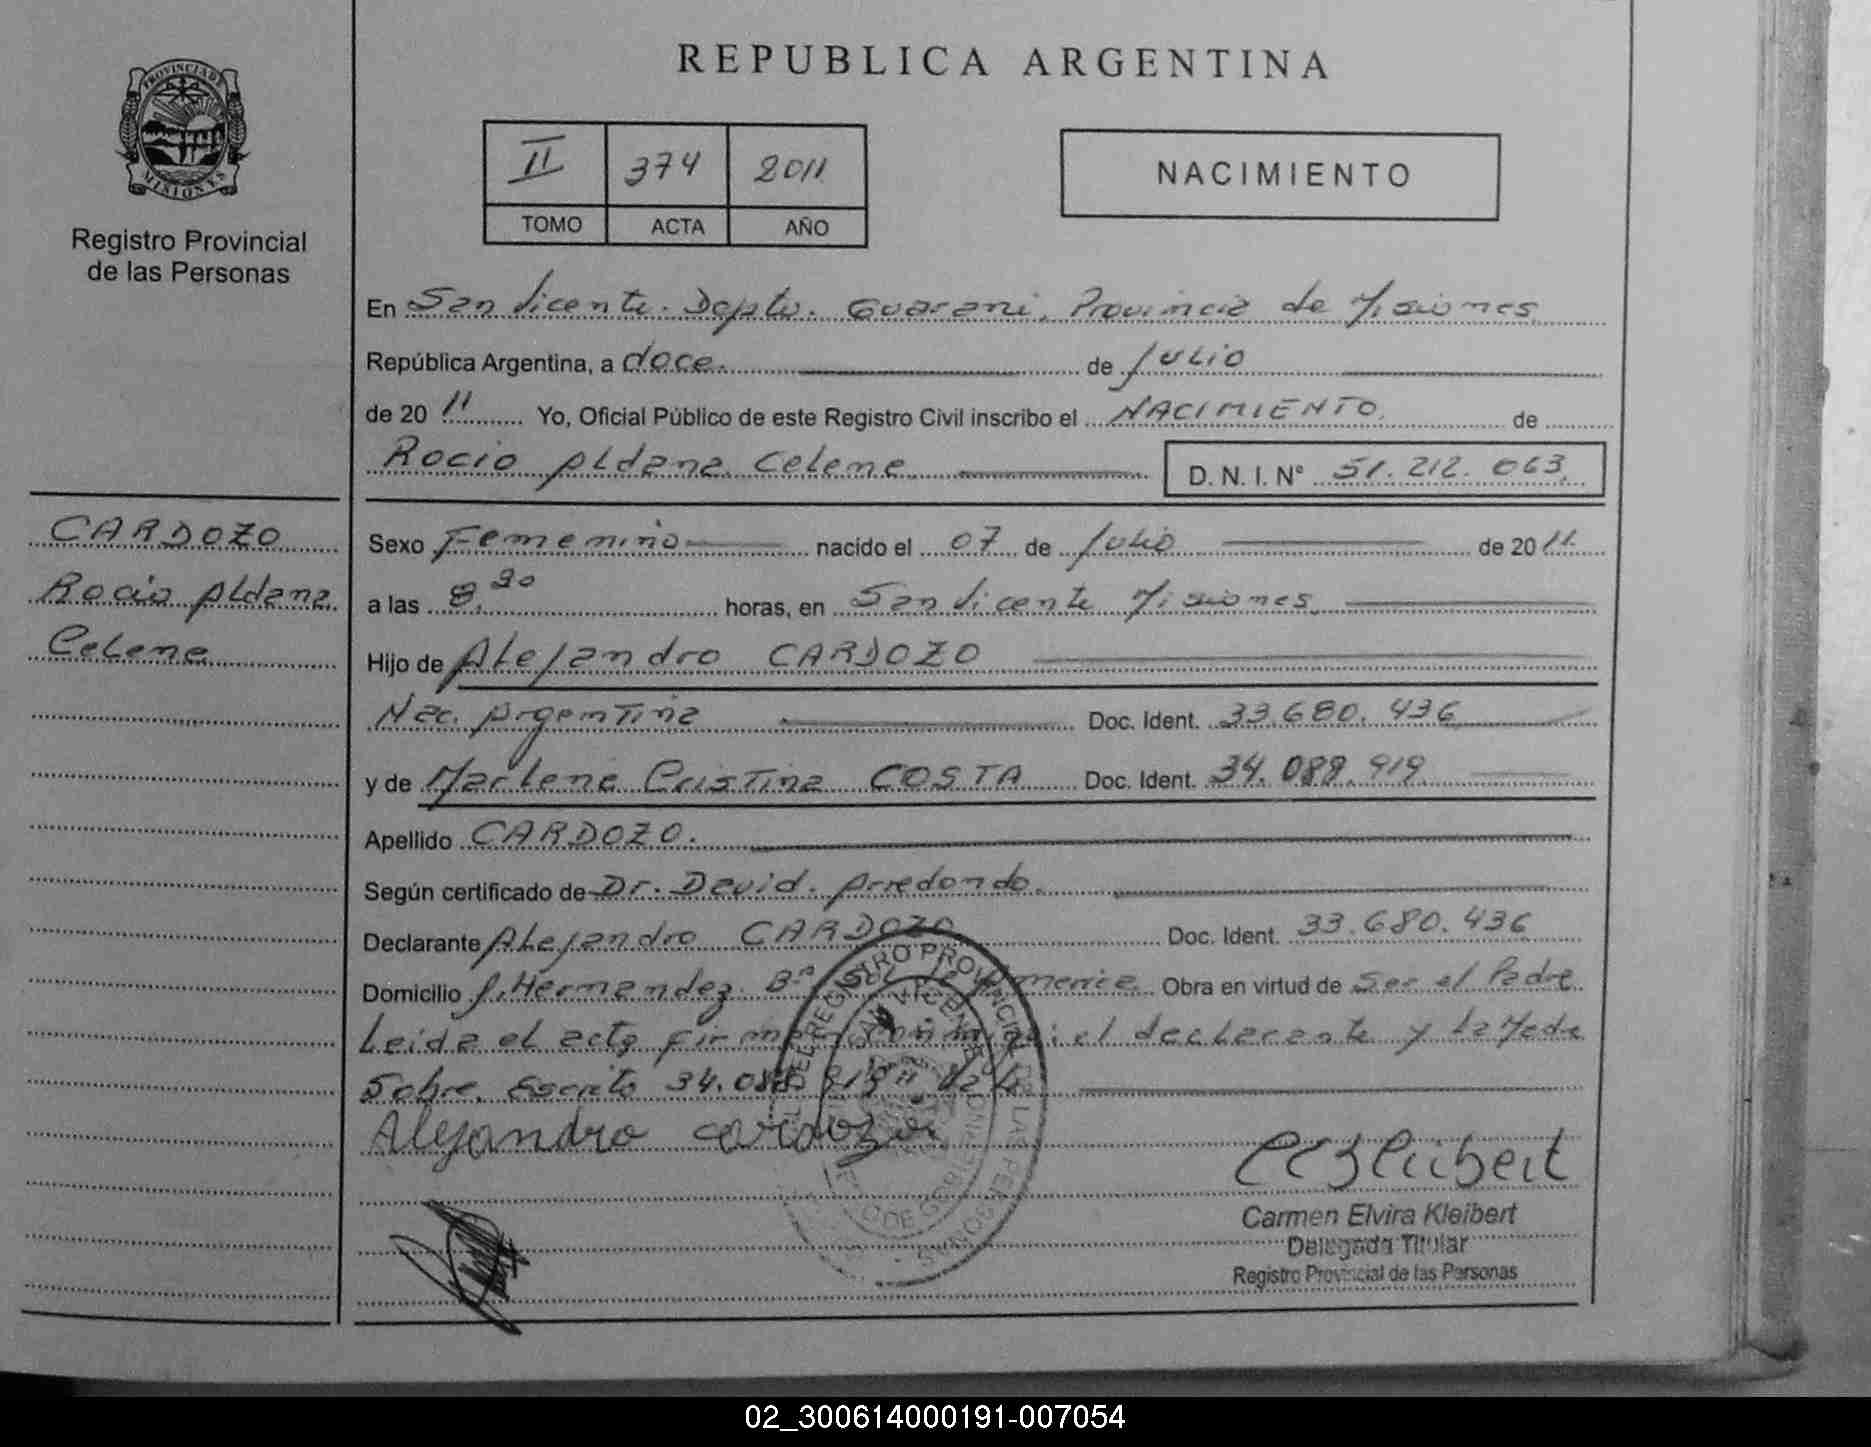 PROVINCIA DE
MISIONES
Registro Provincial
de las Personas
REPUBLICA ARGENTINA
II 374 2011
TOMO ACTA AÑO
NACIMIENTO
En San Vicente. Dpto. Guarani. Provincia de Misiones
República Argentina, a doce. de Julio
de 20 11 Yo, Oficial Público de este Registro Civil inscribo el NACIMIENTO. de
Rocio Aldana Celene D. N. I. Nº 51.212.063
CARDOZO
Rocio Aldana
Celene
Sexo Femenino nacido el 07 de Julio de 20 11
a las 8.30 horas, en San Vicente Misiones
Hijo de Alejandro CARDOZO
Nac. Argentina Doc. Ident. 33.680.436
y de Marlene Cristina COSTA Doc. Ident. 34.089.919
Apellido CARDOZO.
Según certificado de Dr. David. Arredondo.
Declarante Alejandro CARDOZO Doc. Ident. 33.680.436
Domicilio J. Hernandez. Bº Sol de America. Obra en virtud de Ser el Padre
Leida el acta firman conmigo el declarante y La Madre
Sobre Escrito 34.089.919
Alejandro cardozo
REGISTRO PROVINCIAL DE LAS PERSONAS
SAN VICENTE
Carmen Elvira Kleibert
Delegada Titular
Registro Provincial de las Personas
02_300614000191-007054